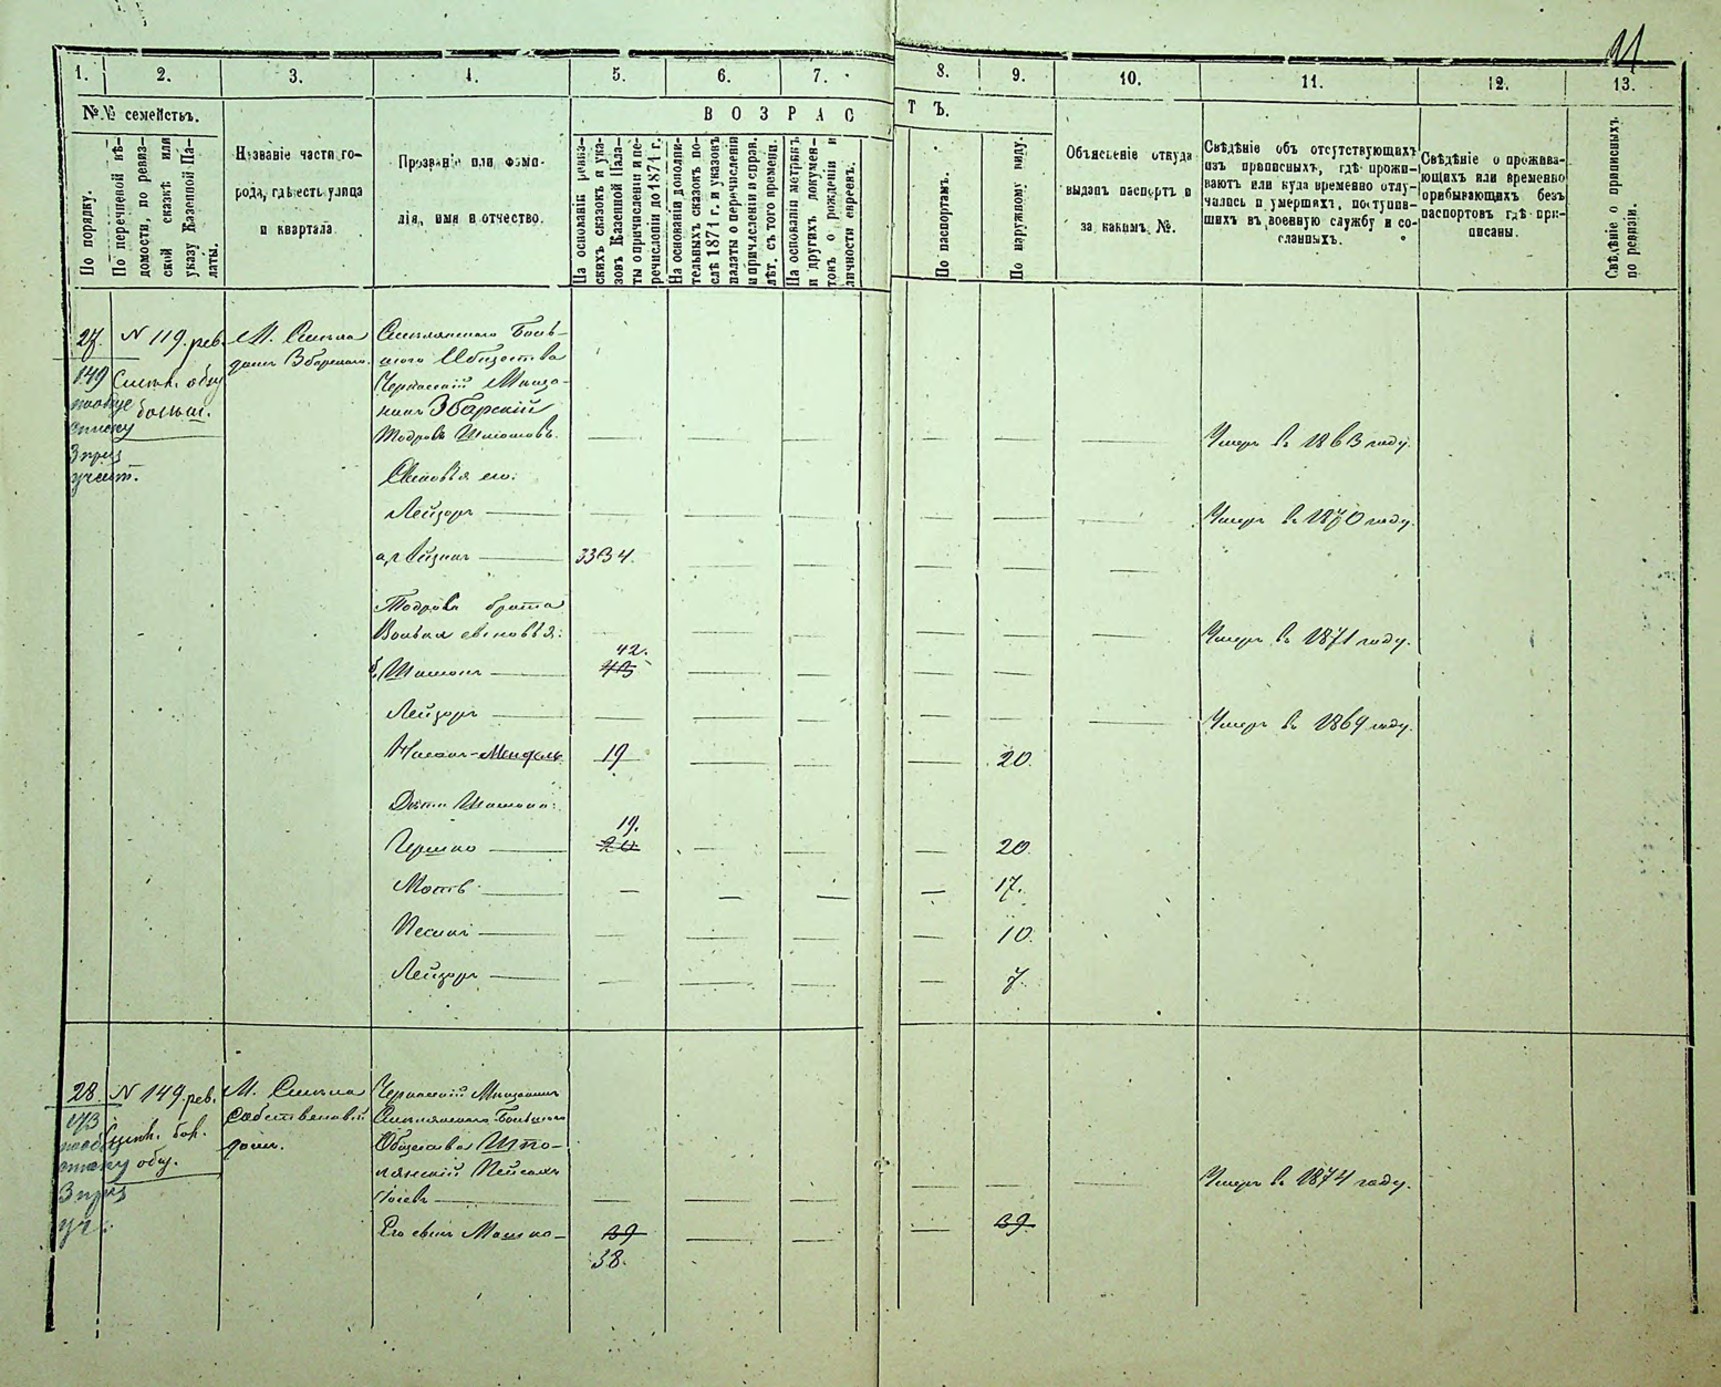 21
1. 2. 3. 4. 5. 6. 7. 8. 9. 10. 11. 12. 13.
№№ семействъ.
В О З Р А С Т Ъ.
По порядку.
По перечневой вѣ-
домости, по ревиз-
ской сказкѣ или
указу Казенной Па-
латы.
Названіе части го-
рода, гдѣ есть улица
и квартала
Прозваніе или фами-
лія, имя и отчество.
На основаніи ревиз-
скихъ сказокъ и ука-
зовъ Казенной Пала-
ты о причисленіи и пе-
речисленіи до 1874 г.
На основаніи дополни-
тельныхъ сказокъ по-
слѣ 1874 г. и указовъ
палаты о перечисленіи
и причисленіи и справ.
лѣт. съ того времени.
На основаніи метрикъ
и другихъ докумен-
товъ о рожденіи и
личности евреевъ.
По паспортамъ.
По наружному виду.
Объясненіе откуда
выданъ паспортъ и
за какимъ №.
Свѣдѣніе объ отсутствующихъ
изъ приписныхъ, гдѣ прожи-
ваютъ или куда временно отлу-
чились и умершихъ, поступив-
шихъ въ военную службу и со-
сланныхъ.
Свѣдѣніе о прожива-
ющихъ или временно
прибывающихъ безъ
паспортовъ гдѣ при-
писаны.
Свѣдѣніе о приписныхъ
по ревизіи.
27. N 119. рев. М. Смѣла Смѣлянскаго Боль-
домъ Збарскаго. шого Общества
149 Смѣл. общ Черкасскій Мѣща-
больш. нинъ Збарскій
списку Тодровъ Шмоновъ. — — — — — — Умеръ въ 1863 году.
3 приз
участ. Сыновья его:
Лейзоръ — — — — — — — Умеръ въ 1870 году.
а, Айзикъ — 33 34. — — — — —
Тодрова брата
Волька сыновья: — — — — — — Умеръ въ 1871 году.
42.
б, Шимонъ — 43 — — — —
Лейзоръ — — — — — — — Умеръ въ 1869 году.
Нисонъ-Мендель 19 — — — 20.
Дѣти Шимона:
19.
Гершко — 20 — — — 20.
Мотъ — — — — — 17.
Песахъ — — — — — 10.
Лейзоръ — — — — — 7.
28. N 149. рев. М. Смѣла Черкасскій Мѣщанинъ
173 Собственный Смѣлянскаго Большого
Смѣл. бол. домъ. Общества Шпо-
общ. лянскій Пейсахъ
3 приз — — — — — — Умеръ въ 1874 году.
уч. Его сынъ Мошко — 39 — — — 39
38.